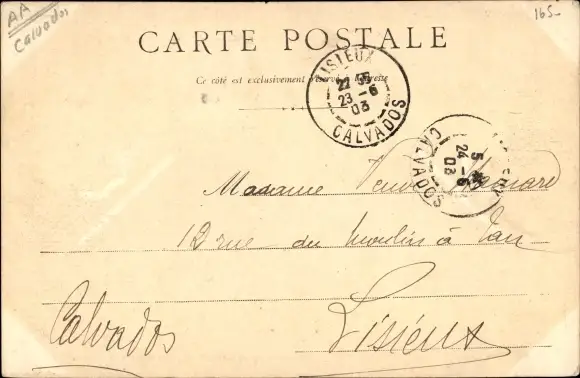 AA
Calvados
165-
CARTE POSTALE
Ce côté est exclusivement réservé à l'adresse
LISIEUX
22
23 -6
03
CALVADOS
5
24 -6
03
CALVADOS
Madame
12 rue du Moulin à Tan
Lisieux
Calvados